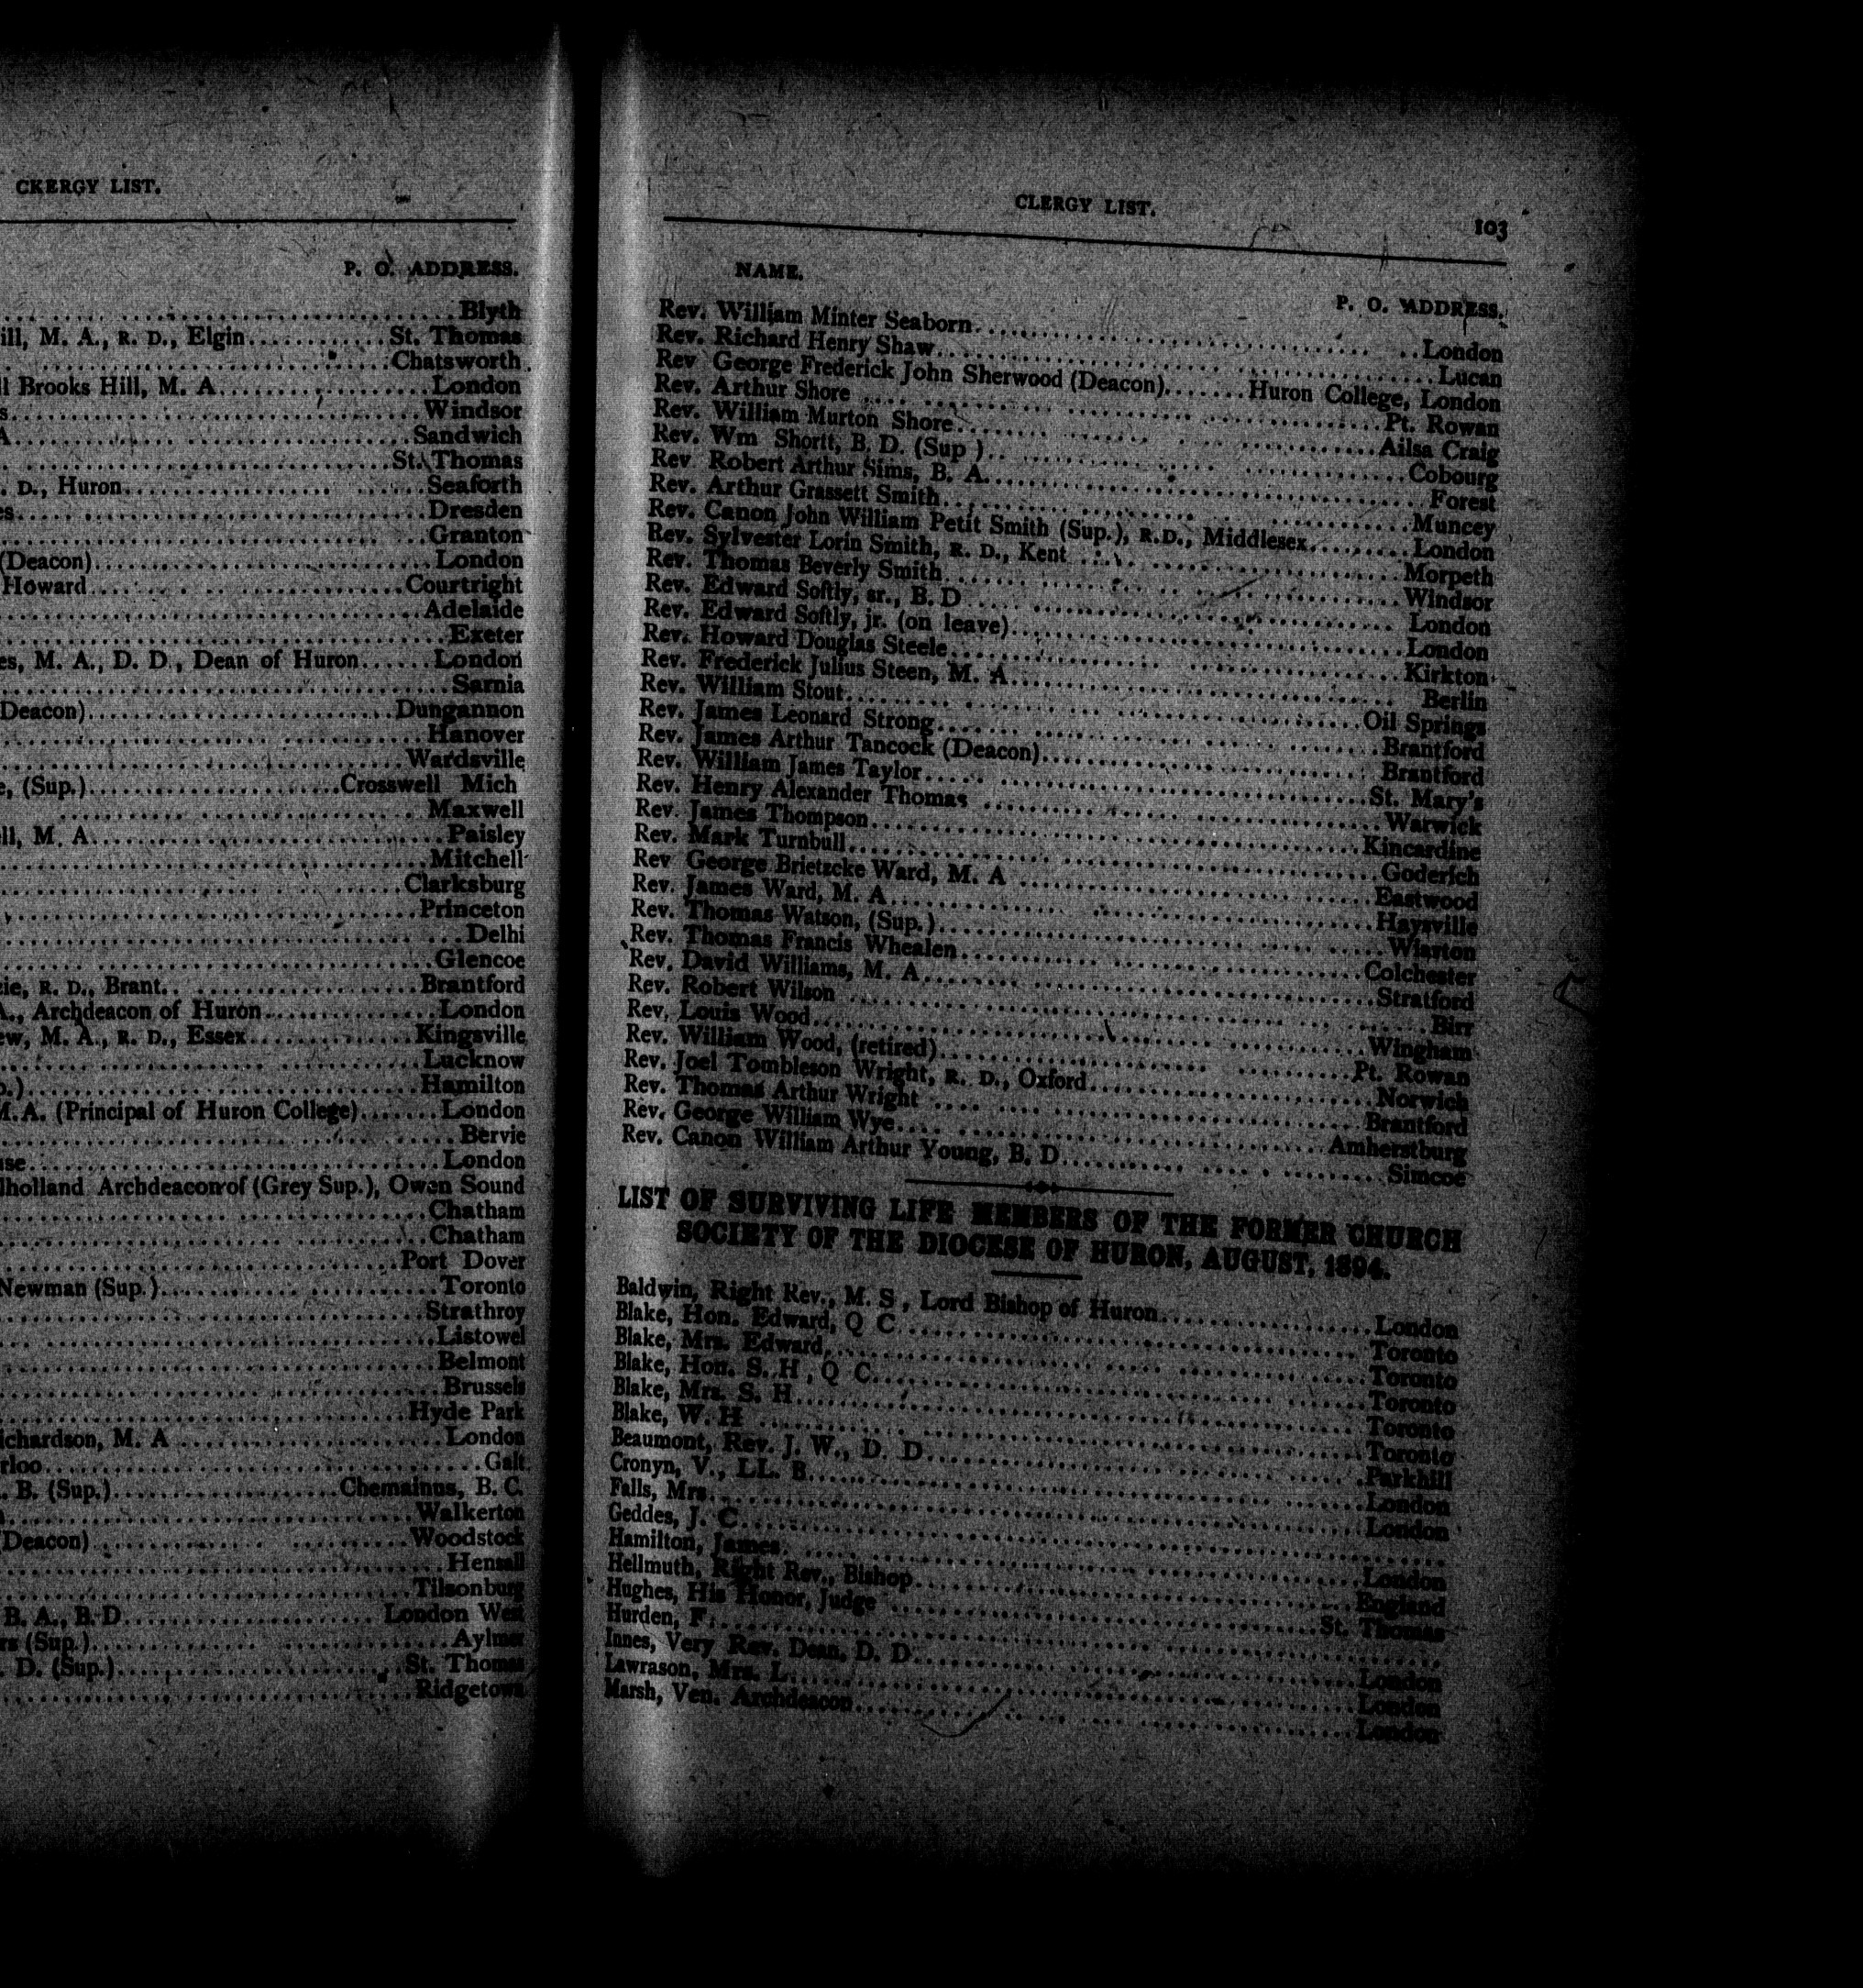 CKERGY LIST.
P. O. ADDRESS.
Blyth
ill, M. A., R. D., Elgin............St. Thomas
Chatsworth
ll Brooks Hill, M. A............London
s............Windsor
A............Sandwich
St. Thomas
. D., Huron............Seaforth
es............Dresden
Granton
(Deacon)............London
Howard............Courtright
Adelaide
Exeter
es, M. A., D. D., Dean of Huron......London
Sarnia
Deacon)............Dungannon
Hanover
Wardsville
e, (Sup.)............Crosswell Mich
Maxwell
ell, M. A............Paisley
Mitchell
Clarksburg
Princeton
Delhi
Glencoe
zie, R. D., Brant............Brantford
A., Archdeacon of Huron............London
ew, M. A., R. D., Essex............Kingsville
Lucknow
p.)............Hamilton
M.A. (Principal of Huron College).......London
Bervie
use............London
lholland Archdeacon of (Grey Sup.), Owen Sound
Chatham
Chatham
Port Dover
Newman (Sup.)............Toronto
Strathroy
Listowel
Belmont
Brussels
Hyde Park
ichardson, M. A............London
rloo............Galt
. B. (Sup.)............Chemainus, B. C.
Walkerton
Deacon)............Woodstock
Hensall
Tilsonburg
B. A., B. D............London West
rs (Sup.)............Aylmer
. D. (Sup.)............St. Thomas
Ridgetown
CLERGY LIST.
103
NAME.
P. O. ADDRESS.
Rev. William Minter Seaborn............London
Rev. Richard Henry Shaw............Lucan
Rev George Frederick John Sherwood (Deacon).......Huron College, London
Rev. Arthur Shore............Pt. Rowan
Rev. William Murton Shore............Ailsa Craig
Rev. Wm Shortt, B. D. (Sup )............Cobourg
Rev Robert Arthur Sims, B. A............Forest
Rev. Arthur Grassett Smith............Muncey
Rev. Canon John William Petit Smith (Sup.), R.D., Middlesex.........London
Rev. Sylvester Lorin Smith, R. D., Kent............Morpeth
Rev. Thomas Beverly Smith............Windsor
Rev. Edward Softly, sr., B. D............London
Rev. Edward Softly, jr. (on leave)............London
Rev. Howard Douglas Steele............Kirkton
Rev. Frederick Julius Steen, M. A............Berlin
Rev. William Stout............Oil Springs
Rev. James Leonard Strong............Brantford
Rev. James Arthur Tancock (Deacon)............Brantford
Rev. William James Taylor............St. Mary's
Rev. Henry Alexander Thomas............Warwick
Rev. James Thompson............Kincardine
Rev. Mark Turnbull............Goderich
Rev George Brietzcke Ward, M. A............Eastwood
Rev. James Ward, M. A............Haysville
Rev. Thomas Watson, (Sup.)............Wiarton
Rev. Thomas Francis Whealen............Colchester
Rev. David Williams, M. A............Stratford
Rev. Robert Wilson............Birr
Rev. Louis Wood............Wingham
Rev. William Wood, (retired)............Pt. Rowan
Rev. Joel Tombleson Wright, R. D., Oxford............Norwich
Rev. Thomas Arthur Wright............Brantford
Rev. George William Wye............Amherstburg
Rev. Canon William Arthur Young, B. D............Simcoe
LIST OF SURVIVING LIFE MEMBERS OF THE FORMER CHURCH
SOCIETY OF THE DIOCESE OF HURON, AUGUST, 1894.
Baldwin, Right Rev., M. S , Lord Bishop of Huron............London
Blake, Hon. Edward, Q C............Toronto
Blake, Mrs. Edward............Toronto
Blake, Hon. S. H , Q C............Toronto
Blake, Mrs. S. H............Toronto
Blake, W. H............Toronto
Beaumont, Rev. J. W., D. D............Parkhill
Cronyn, V., LL. B............London
Falls, Mrs............London
Geddes, J. C............
Hamilton, James............London
Hellmuth, Right Rev., Bishop............England
Hughes, His Honor, Judge............St. Thomas
Hurden, F............
Innes, Very Rev. Dean, D. D............London
Lawrason, Mrs. L............London
Marsh, Ven. Archdeacon............London